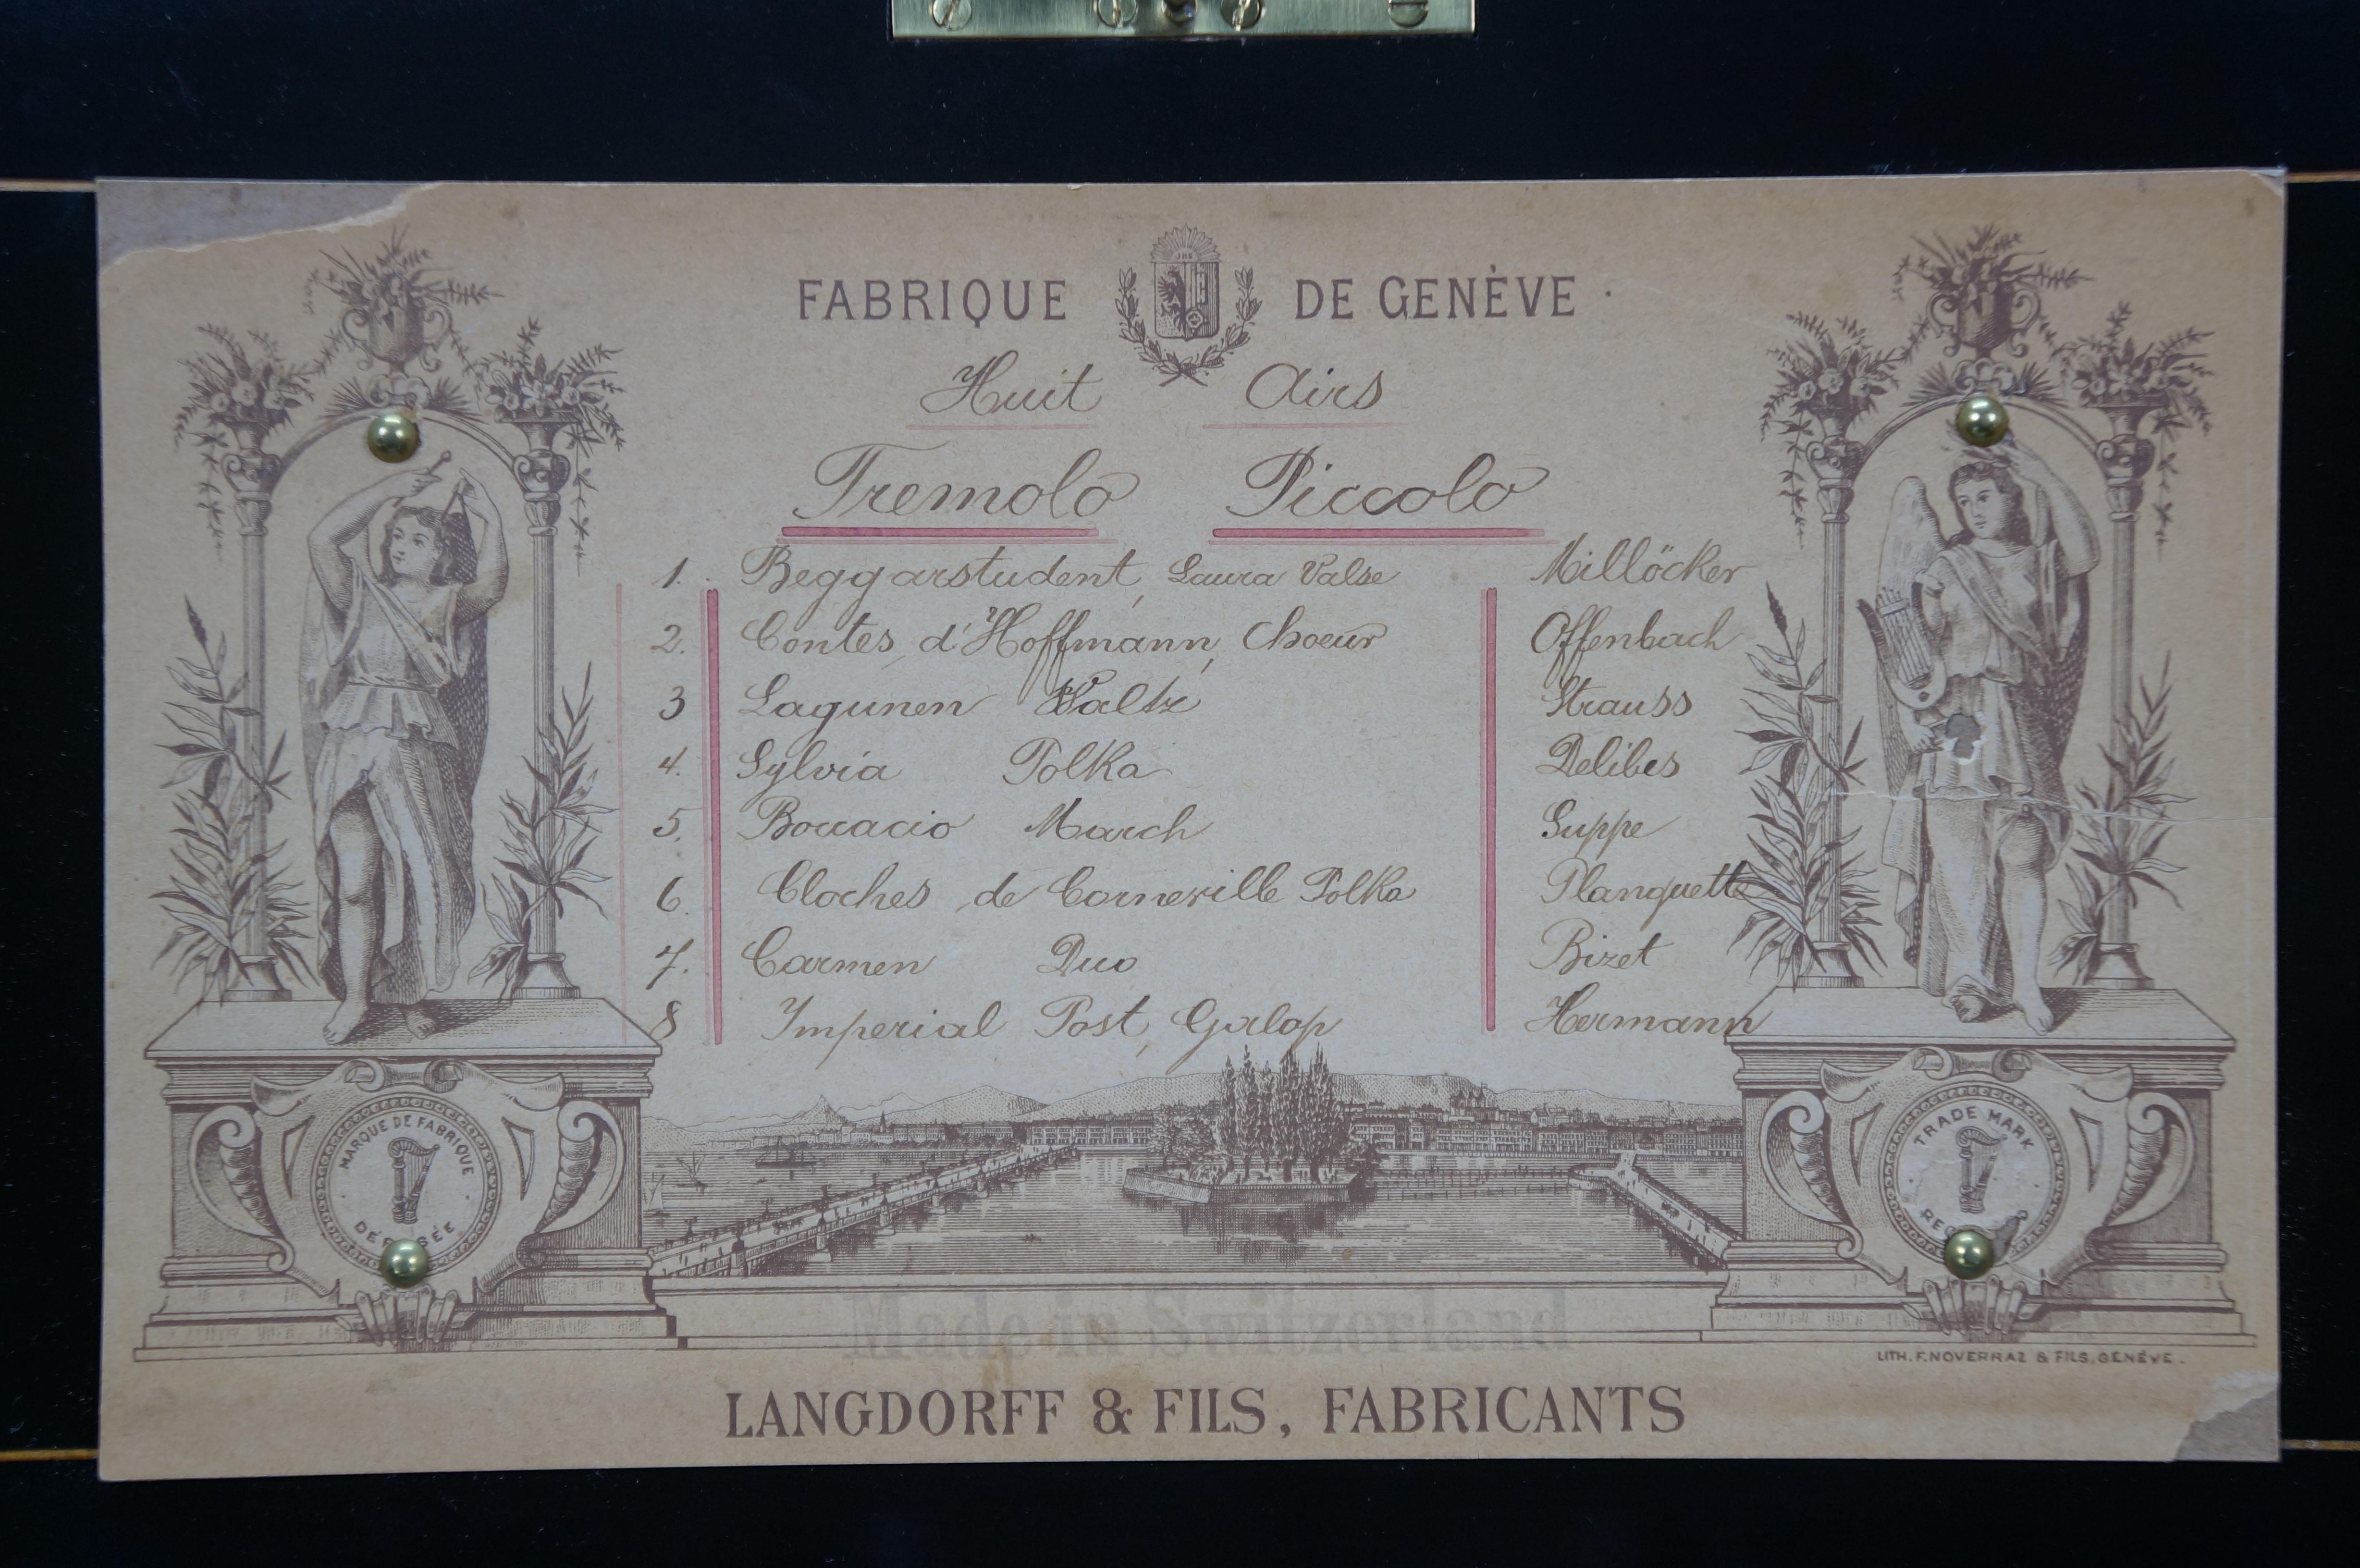 FABRIQUE DE GENÈVE
Huit Airs
Tremolo Piccolo
1. Beggarstudent, Laura Valse Millöcker
2. Contes d'Hoffmann, Choeur Offenbach
3 Lagunen Waltz Strauss
4. Sylvia Polka Delibes
5. Boccacio March Suppe
6. Cloches de Corneville Polka Planquette
7. Carmen Duo Bizet
8 Imperial Post, Galop Hermann
MARQUE DE FABRIQUE
TRADE MARK
Made in Switzerland
LITH. F. NOVERRAZ & FILS, GENÈVE.
LANGDORFF & FILS, FABRICANTS